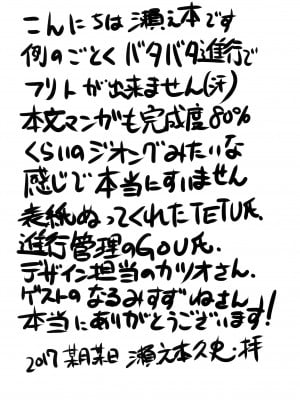 こんにちは 瀬之本です
例のごとく バタバタ進行で
フリトが出来ません(汗)
本文マンガも完成度80%
くらいのジオングみたいな
感じで本当にすいません
表紙ぬってくれたTETU氏、
進行管理のGOU氏、
デザイン担当のカツオさん、
ゲストの なるみすずねさん
本当にありがとうございます!
2017 某月某日 瀬之本久史・拝